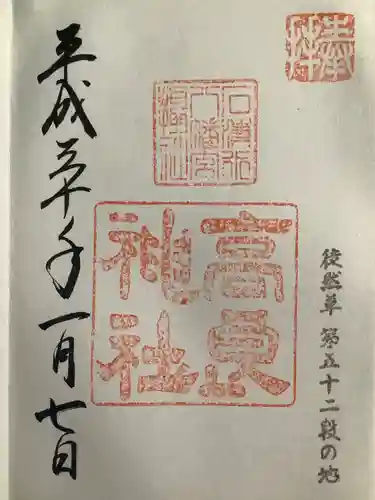 奉拝
徒然草 第五十二段の地
石清水
八幡宮
摂社
高良
神社
平成三十年一月七日